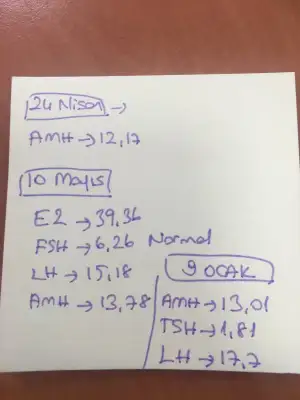 24 Nisan →
AMH → 12,17
10 Mayıs
E2 → 39,36
FSH → 6,26 Normal
LH → 15,18
AMH → 13,78
9 OCAK
AMH → 13,01
TSH → 1,81
LH → 17,7